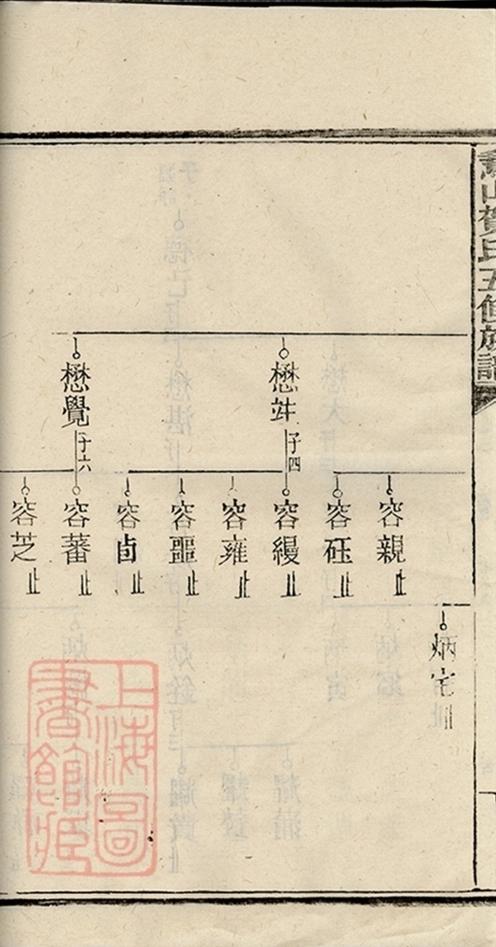 山賀氏五修族譜
懋𡌶子四
懋覺子六
容親止
容砡止
容縵止
容雍止
容噩止
容卣止
容蕃止
容芝止
炳宅止
上海圖書館藏